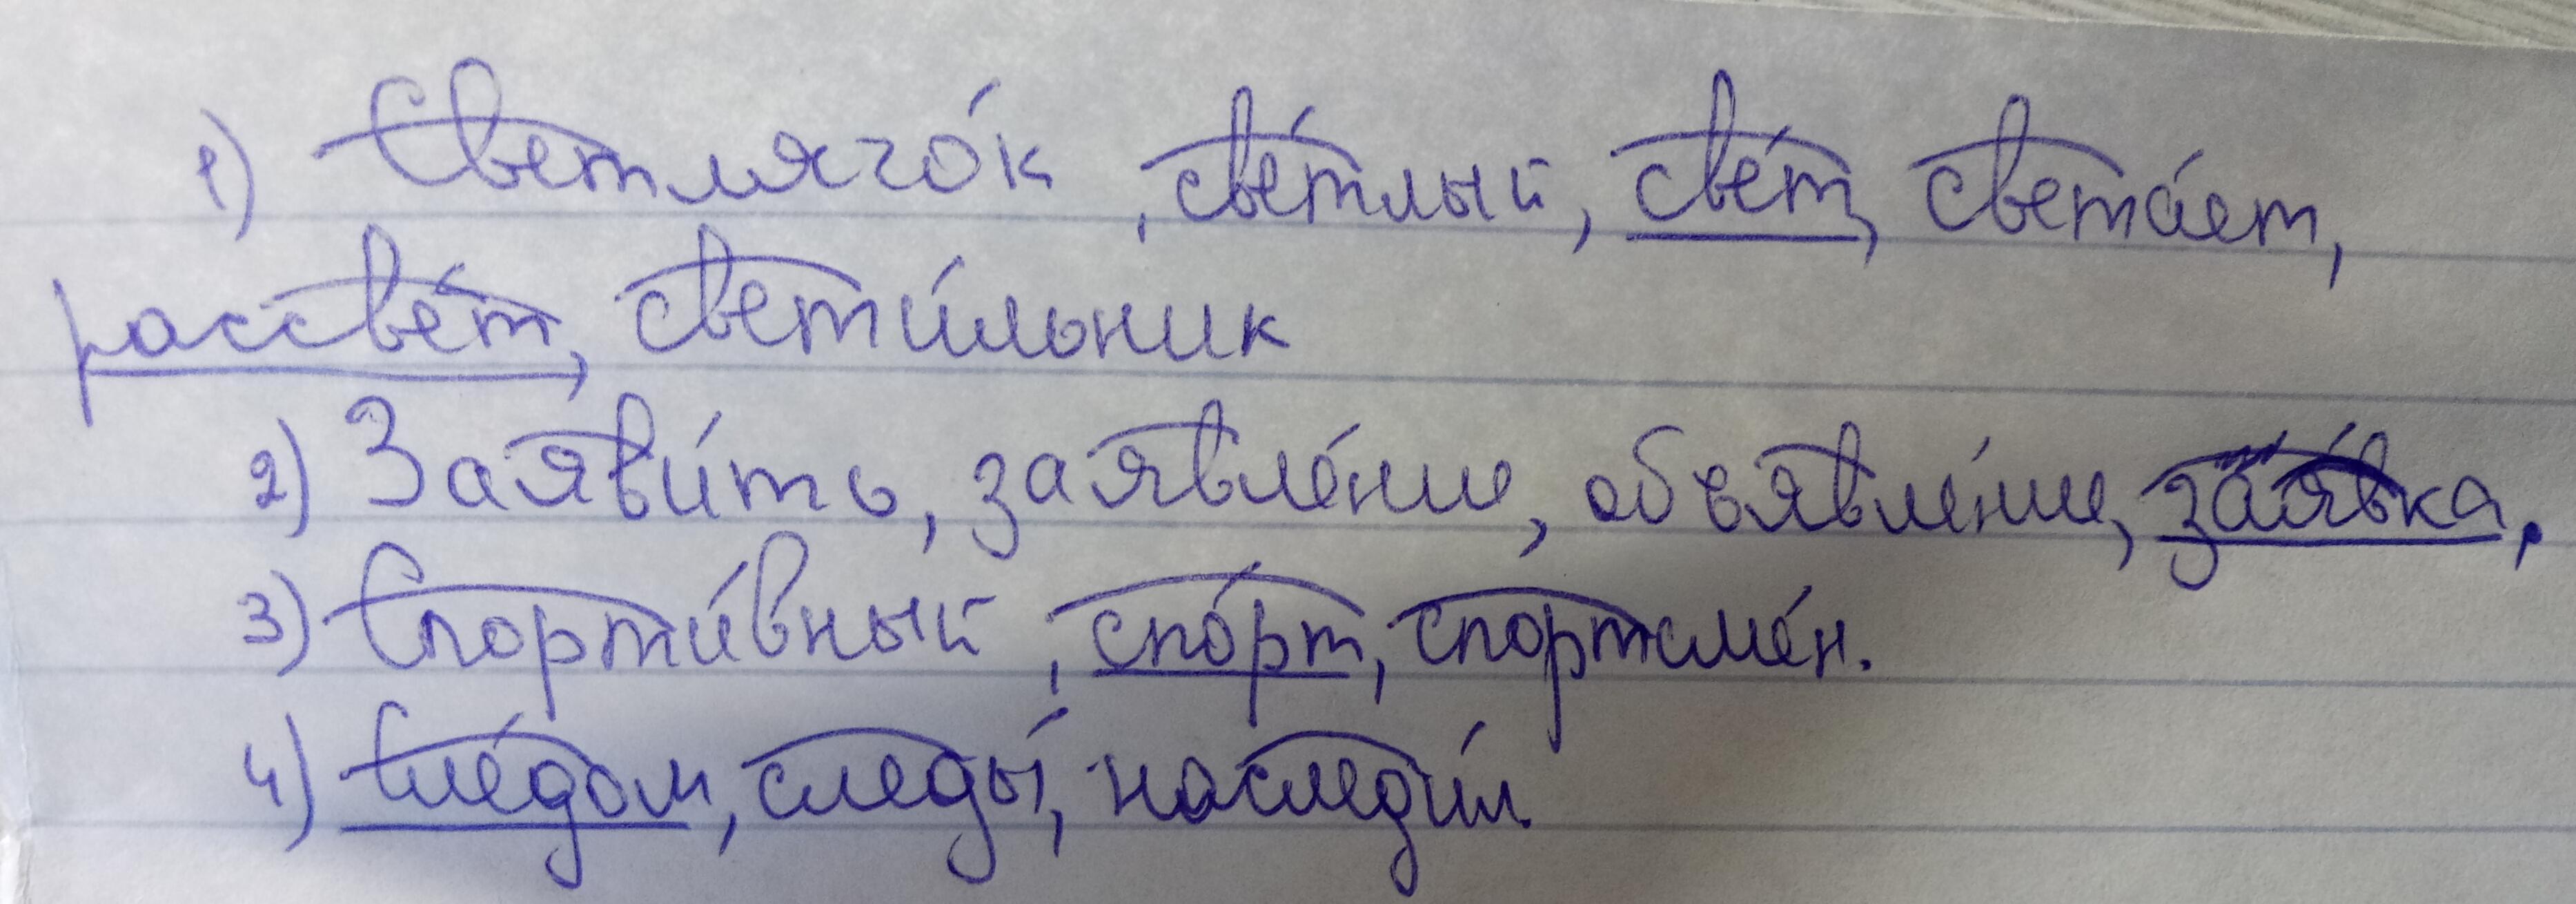 1) Светлячо́к, све́тлый, све́т, света́ет,
рассве́т, свети́льник
2) Заяви́ть, заявле́ние, объявле́ние, зая́вка.
3) Спорти́вный, спо́рт, спортсме́н.
4) Сле́дом, следы́, наследи́л.